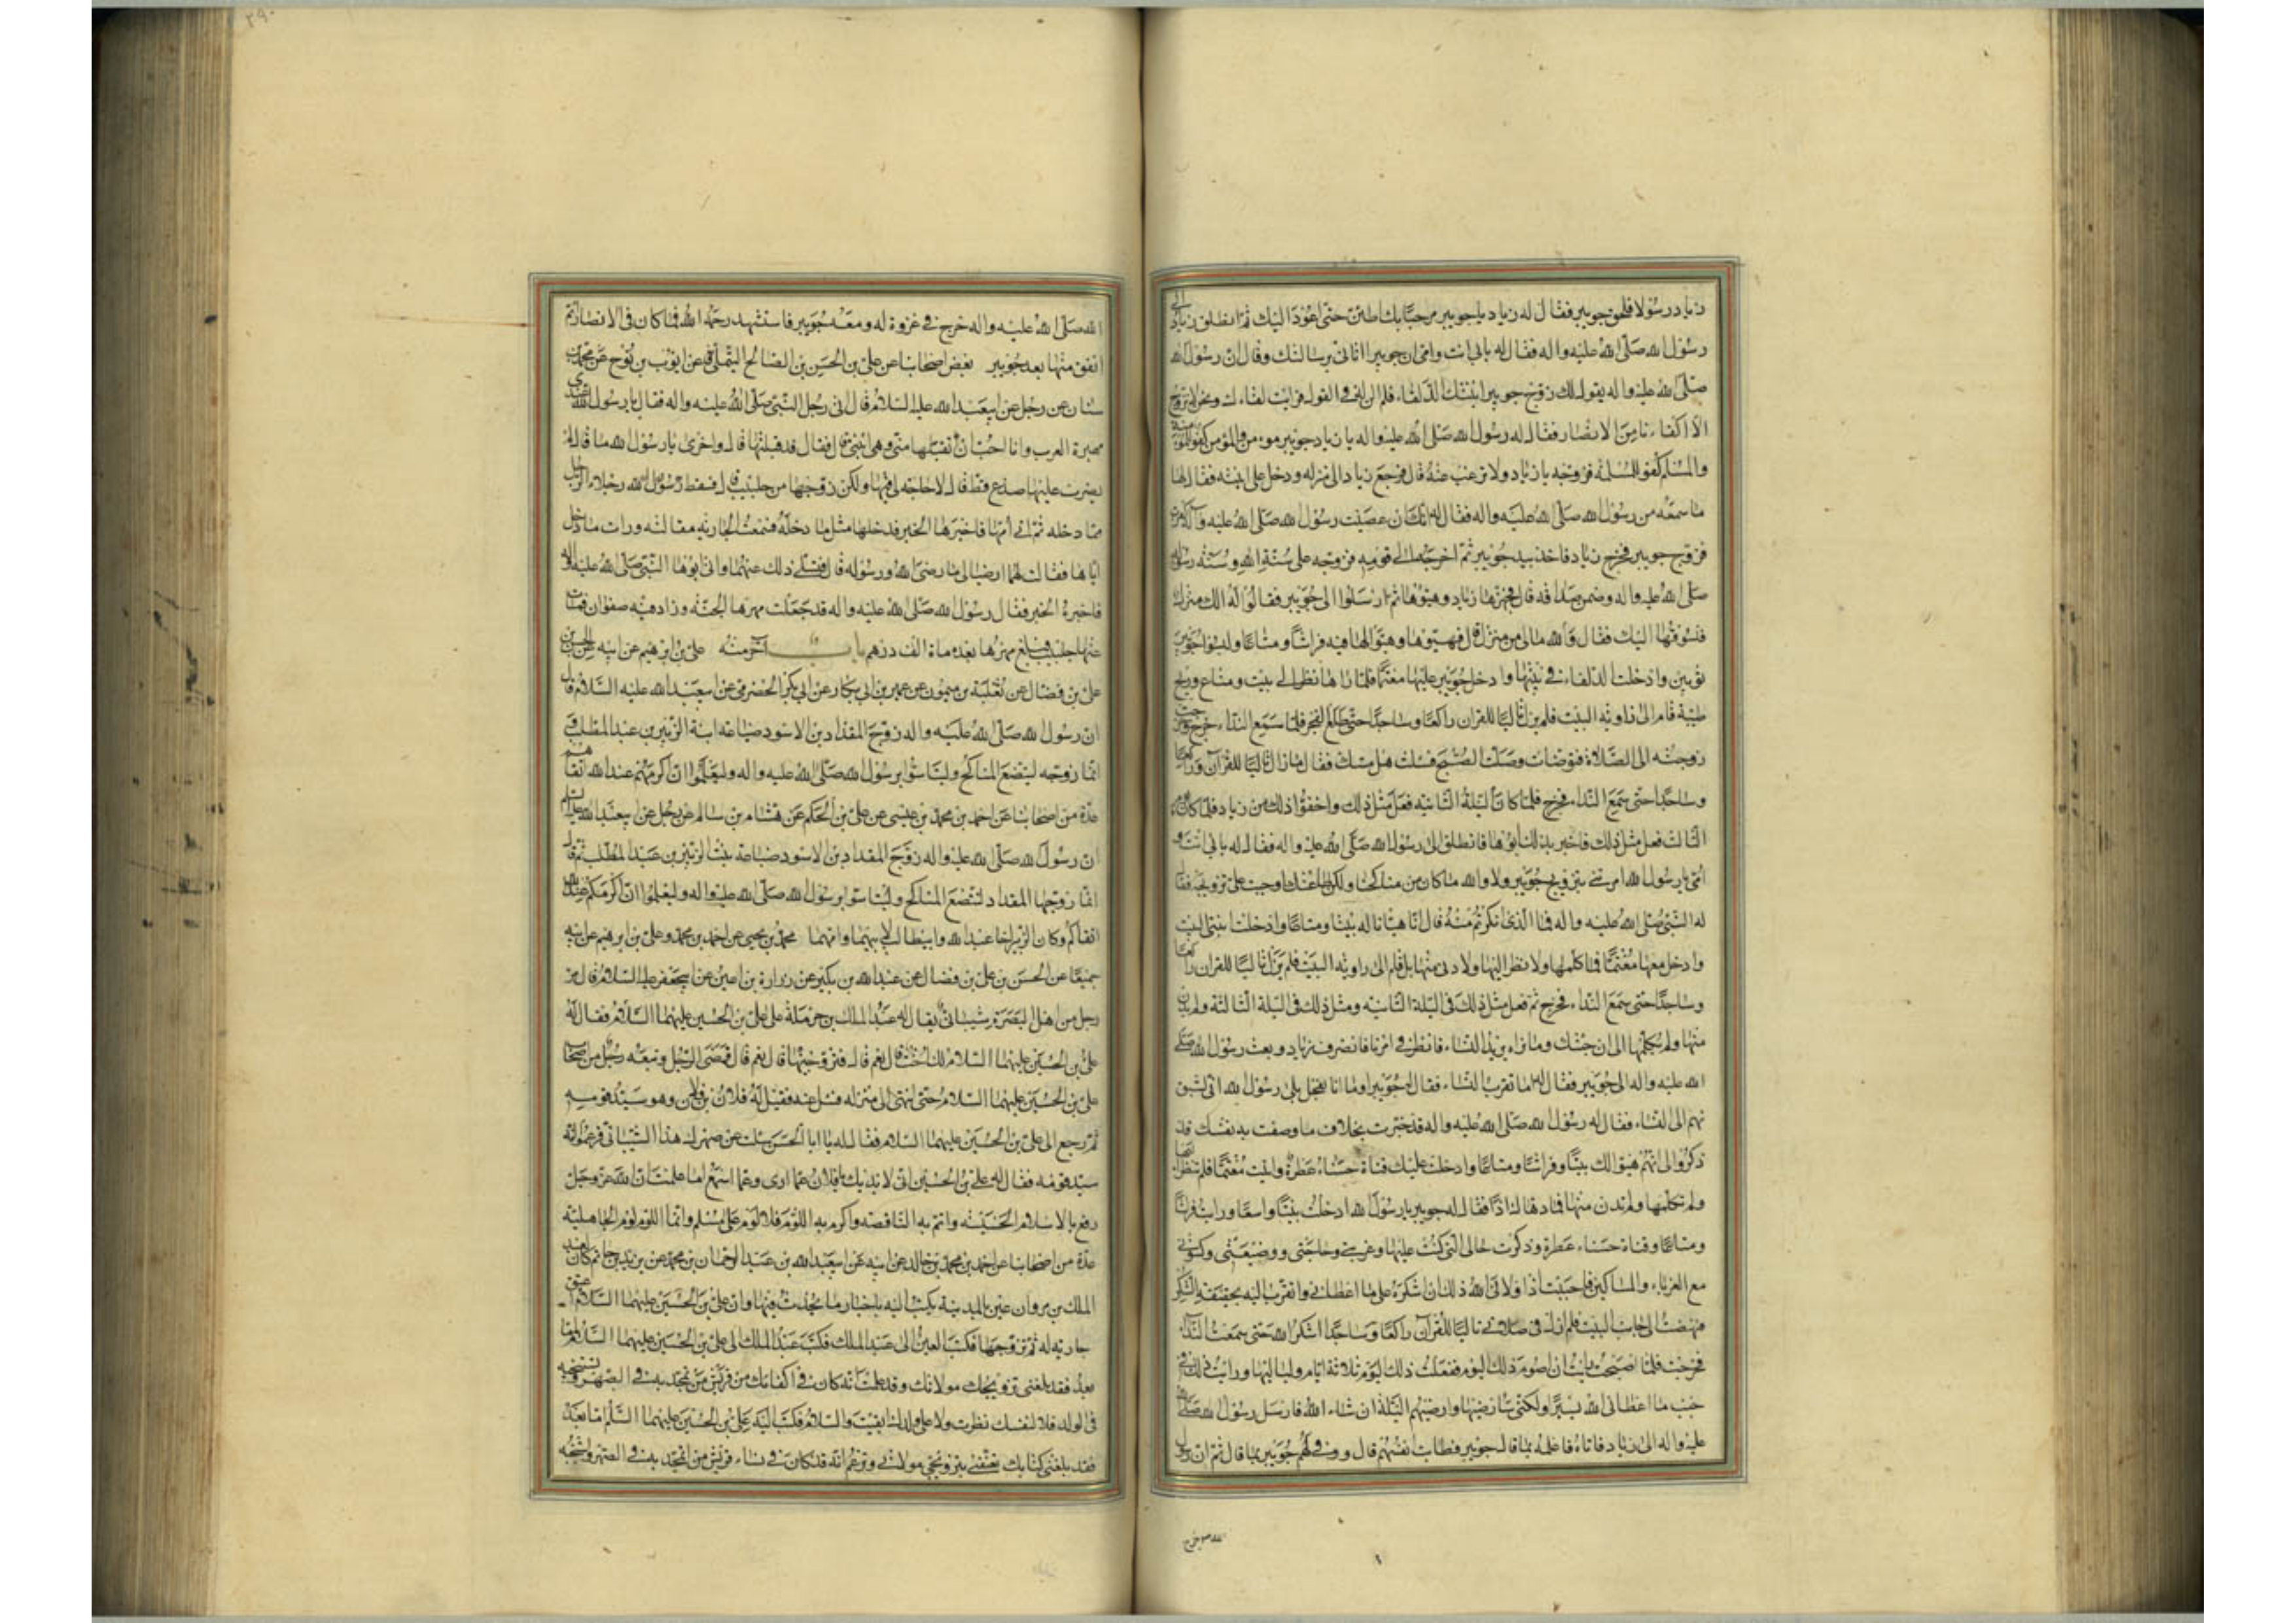 زياد رسولا فلحق جويبر فقال له زياد يا جويبر مرحبا بك اطمئن حتى اعود اليك ثم انطلق زياد الى
رسول الله صلى الله عليه واله فقال له بابي انت وامي ان جويبرا اتاني برسالتك وقال ان رسول الله
صلى الله عليه واله يقول لك زوج جويبرا ابنتك الذلفاء فلم الن له في القول فرايت لقاءك ونحن لا نتزوج
الا اكفاءنا من الانصار فقال له رسول الله صلى الله عليه واله يا زياد جويبر مومن والمؤمن كفو للمؤمنة
والمسلم كفو للمسلمة فزوجه يا زياد ولا ترغب عنه قال فرجع زياد الى منزله ودخل على ابنته فقال لها
ما سمعه من رسول الله صلى الله عليه واله فقال له انك ان عصيت رسول الله صلى الله عليه واله كفرت
فزوج جويبر فخرج زياد فاخذ بيد جويبر ثم اخرجه الى قومه فزوجه على سنة الله وسنة رسوله
صلى الله عليه واله وضمن صداقه قال فجهزها زياد وهيؤها ثم ارسلوا الى جويبر فقالوا له الك منزل
فنسوقها اليك فقال والله مالي من منزل قال فهيؤها وهيؤا لها فيه فراشا ومتاعا وكسوا جويبر
ثوبين وادخلت الذلفاء في بيتها وادخل جويبر عليها مغتما فلما راها نظر الى بيت ومتاع وريح
طيبة قام الى زاوية البيت فلم يزل تاليا للقران راكعا وساجدا حتى طلع الفجر فلما سمع النداء خرج وخرجت
زوجته الى الصلاة فتوضات وصلت الصبح فسئلت هل مسك فقال ما زال تاليا للقرآن وراكعا
وساجدا حتى سمع النداء فخرج فلما كان الليلة الثانية فعل مثل ذلك واخفوا ذلك من زياد فلما كان اليوم
الثالث فعل مثل ذلك فاخبر بذلك ابوها فانطلق الى رسول الله صلى الله عليه واله فقال له بابي انت و
امي يا رسول الله امرتني بتزويج جويبر ولا والله ما كان من مناكحنا ولكن طاعتك اوجبت علي تزويجه فقال
له النبي صلى الله عليه واله فما الذي انكرتم منه قال انا هيانا له بيتا ومتاعا وادخلت ابنتي البيت
وادخل معها مغتما فما كلمها ولا نظر اليها ولا دنى منها بل قام الى زاوية البيت فلم يزل تاليا للقران راكعا
وساجدا حتى سمع النداء فخرج ثم فعل مثل ذلك في الليلة الثانية ومثل ذلك في الليلة الثالثة ولم يدن
منها ولم يكلمها الى ان جئتك وما نراه يريد النساء فانظر في امرنا فانصرف زياد وبعث رسول الله صلى
الله عليه واله الى جويبر فقال له اما تقرب النساء فقال له جويبر اوما انا بفحل بلى يا رسول الله اني لشبق
نهم الى النساء فقال له رسول الله صلى الله عليه واله قد خبرت بخلاف ما وصفت به نفسك قد
ذكروا لي انهم هيؤا لك بيتا وفراشا ومتاعا وادخلت عليك فتاة حسناء عطرة واتيت مغتما فلم تنظر اليها
ولم تكلمها ولم تدن منها فما دهاك اذا فقال له جويبر يا رسول الله ادخلت بيتا واسعا ورايت فراشا
ومتاعا وفتاة حسناء عطرة وذكرت حالي التي كنت عليها وغربتي وحاجتي ووضيعتي وكينونتي
مع الغرباء والمساكين فاحببت اذا ولاني الله ذلك ان اشكره على ما اعطاني واتقرب اليه بحقيقة الشكر
فنهضت الى جانب البيت فلم ازل في صلاتي تاليا للقرآن راكعا وساجدا اشكر الله حتى سمعت النداء
فخرجت فلما اصبحت رايت ان اصوم ذلك اليوم ففعلت ذلك اليوم ثلاثة ايام ولياليها ورايت ذلك في
جنب ما اعطاني الله يسيرا ولكني سارضيها وارضيهم الليلة ان شاء الله فارسل رسول الله صلى الله
عليه واله الى زياد فاتاه فاعلمه بما قال جويبر فطابت انفسهم قال ووفى لهم جويبر بما قال ثم ان رسول
الله ص خرج
الله صلى الله عليه واله خرج في غزوة له ومعه جويبر فاستشهد رحمه الله فما كان في الانصار ايم
انفق منها بعد جويبر بعض اصحابنا عن علي بن الحسين بن الصالح التيملي عن ايوب بن نوح عن محمد بن
سنان عن رجل عن ابي عبد الله عليه السلام قال اتى رجل النبي صلى الله عليه واله فقال يا رسول الله عندي
مهيرة العرب وانا احب ان تقبلها مني وهي ابنتي قال فقال قد قبلتها قال واخرى يا رسول الله قال وما هي قال
لم يضرب عليها صدغ قط قال لا حاجة لي فيها ولكن زوجها من جلبيب قال فسقط رجلا الرجل
مما دخله ثم اتى امها فاخبرها الخبر فدخلها مثل ما دخله فسمعت الجارية مقالته ورات ما دخل
اباها فقالت لهما ارضيا لي ما رضي الله ورسوله لي قال فتسلى ذلك عنهما واتى ابوها النبي صلى الله عليه واله
فاخبره الخبر فقال رسول الله صلى الله عليه واله قد جعلت مهرها الجنة وزاد فيه صفوان قال فمات
عنها جلبيب فبلغ مهرها بعده مائة الف درهم باب آخر منه علي بن ابرهيم عن ابيه عن الحسن بن
علي بن فضال عن ثعلبة بن ميمون عن عمر بن ابي بكار عن ابي بكر الحضرمي عن ابي عبد الله عليه السلام قال
ان رسول الله صلى الله عليه واله زوج المقداد بن الاسود ضباعة ابنة الزبير بن عبد المطلب و
انما زوجه لتتضع المناكح وليتاسوا برسول الله صلى الله عليه واله وليعلموا ان اكرمهم عند الله اتقاهم
عدة من اصحابنا عن احمد بن محمد بن عيسى عن علي بن الحكم عن هشام بن سالم عن رجل عن ابي عبد الله عليه السلام
ان رسول الله صلى الله عليه واله زوج المقداد بن الاسود ضباعة بنت الزبير بن عبد المطلب ثم قال
انما زوجها المقداد لتتضع المناكح وليتاسوا برسول الله صلى الله عليه واله وليعلموا ان اكرمكم عند الله
اتقاكم وكان الزبير اخا عبد الله وابي طالب لابيهما وامهما محمد بن يحيى عن احمد بن محمد وعلي بن ابرهيم عن ابيه
جميعا عن الحسن بن علي بن فضال عن عبد الله بن بكير عن زرارة بن اعين عن ابي جعفر عليه السلام قال مر
رجل من اهل البصرة شيباني يقال له عبد الملك بن حرملة على علي بن الحسين عليهما السلام فقال له
علي بن الحسين عليهما السلام الك اخت قال نعم قال فتزوجنيها قال نعم قال فمضى الرجل وتبعه رجل من اصحاب
علي بن الحسين عليهما السلام حتى انتهى الى منزله فسئل عنه فقيل له فلان بن فلان وهو سيد قومه
ثم رجع الى علي بن الحسين عليهما السلام فقال له يا ابا الحسن سئلت عن صهرك هذا الشيباني فزعموا انه
سيد قومه فقال له علي بن الحسين اني لابديك يا فلان عما ارى وعما اسمع اما علمت ان الله عز وجل
رفع بالاسلام الخسيسة واتم به الناقصة واكرم به اللؤم فلا لوم على مسلم وانما اللوم لوم الجاهلية
عدة من اصحابنا عن احمد بن محمد بن خالد عن ابيه عن ابي عبد الله بن عبد الرحمان بن محمد عن يزيد بن حاتم قال كان لعبد
الملك بن مروان عين بالمدينة يكتب اليه باخبار ما يحدث فيها وان علي بن الحسين عليهما السلام اعتق
جارية له ثم تزوجها فكتب العين الى عبد الملك فكتب عبد الملك الى علي بن الحسين عليهما السلام اما
بعد فقد بلغني تزويجك مولاتك وقد علمت انه كان في اكفائك من قريش من تمجد به في الصهر وتستنجبه
في الولد فلا لنفسك نظرت ولا على ولدك ابقيت والسلام فكتب اليه علي بن الحسين عليهما السلم اما بعد
فقد بلغني كتابك تعنفني بتزويجي مولاتي وتزعم انه قد كان في نساء قريش من اتمجد به في الصهر واستنجبه